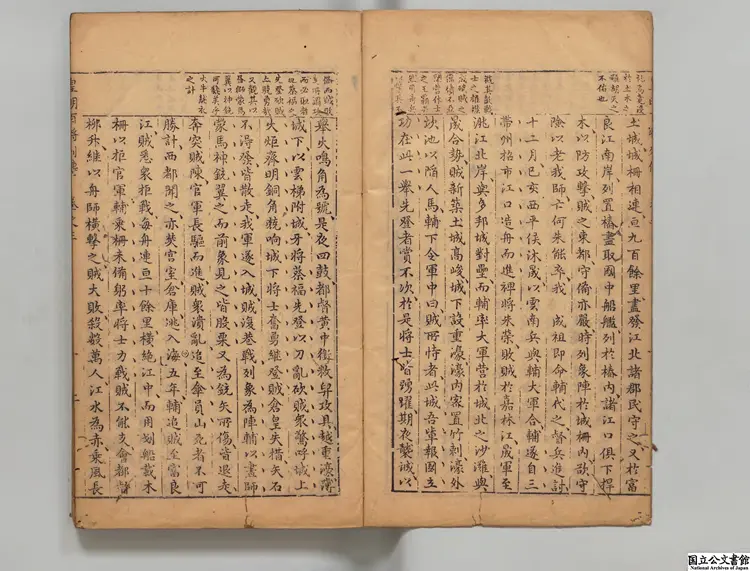 土城城柵相連亘九百餘里盡發江北諸郡民守之又於富
良江南岸列置樁盡取國中船艦列於樁內諸江口俱下捍
木以防攻擊賊之東都守備亦嚴時列象陣於城柵內欲守
險以老我師亡何朱能卒我　成祖即命輔代之督兵進討
十二月己亥西平侯沐晟以雲南兵與輔大軍合輔遂自三
帶州招市江口造舟而進裨將朱榮敗賊於嘉林江晟軍至
洮江北岸與多邦城對壘而輔率大軍營於城北之沙灘與
晟合勢賊新築土城高峻城下設重濠濠內密置竹刺濠外
坎池以陷人馬輔下令軍中曰賊所恃者此城吾輩報國立
功在此一舉先登者賞不次於是將士皆踴躍期夜襲城以
舉火鳴角為號是夜四鼓都督黃中銜救舁攻具越重濠薄
城下以雲梯附城牙將蔡福先登以刀亂砍賊眾驚呼城上
火炬齊明銅角競响城下將士奮勇繼登賊倉皇失措矢石
不得發皆散走我軍遂入城賊復巷戰列象為陣輔以畫師
蒙馬神銃翼之而前象見之皆股栗又為銃矢所傷皆退走
奔突賊陳官軍長驅而進賊眾潰亂追至傘員山死者不可
勝計西都聞之亦焚官室倉庫逃入海五年輔追賊至富良
江賊悉眾拒戰每舟連亘十餘里橫絕江中而用划船載木
柵以拒官軍輔乘柵未備躬率將士力戰賊不能支會都督
柳升繼以舟師橫擊之賊大敗殺數萬人江水為赤乘風長
国立公文書館
National Archives of Japan